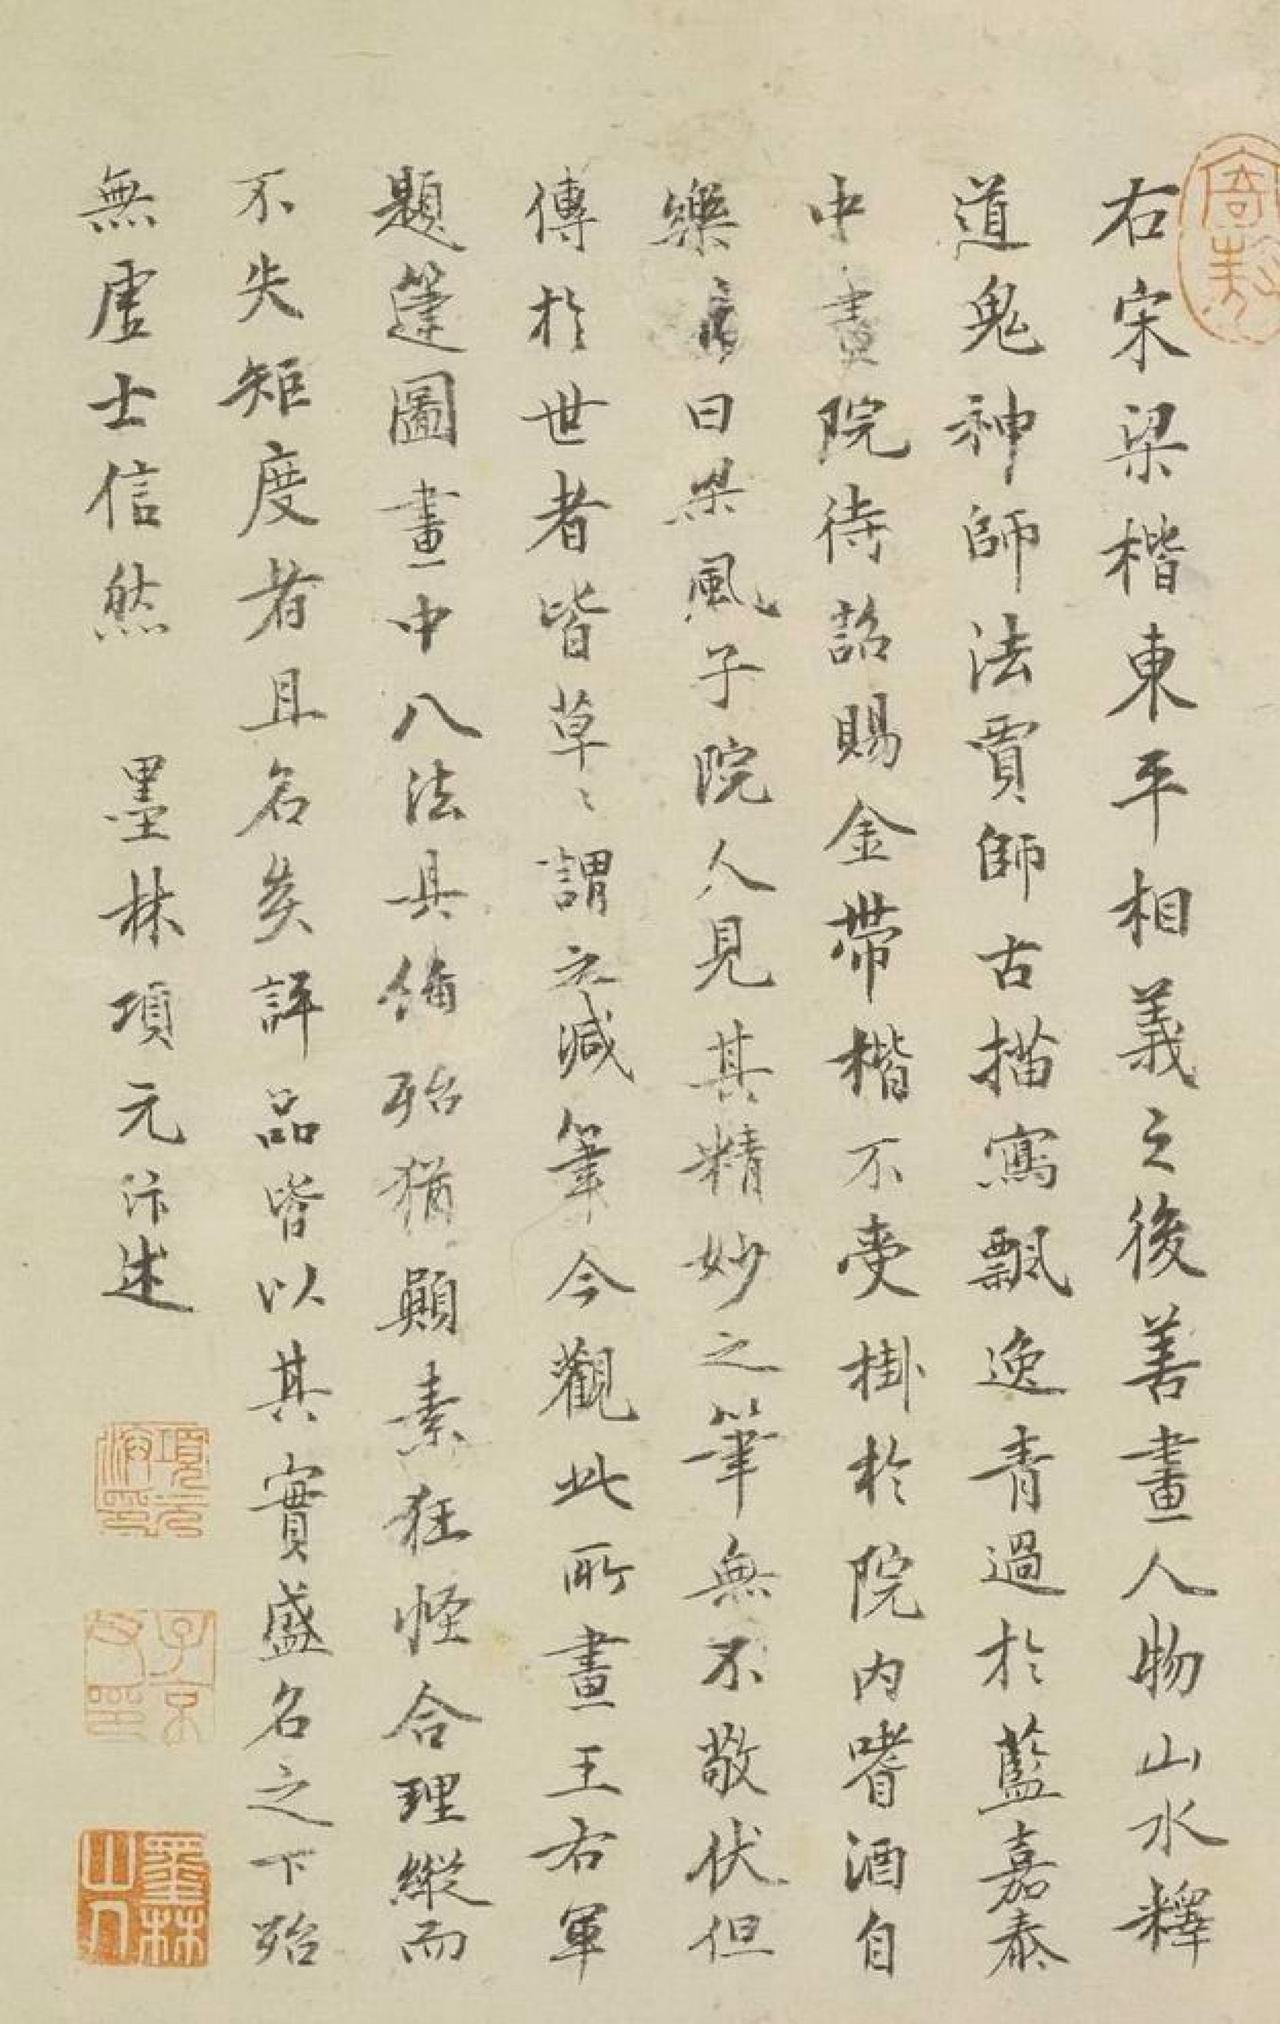 右宋梁楷東平相義之後善畫人物山水釋
道鬼神師法賈師古描寫飄逸青過於藍嘉泰
中畫院待詔賜金帶楷不受掛於院内嗜酒自
樂号曰梁風子院人見其精妙之筆無不敬伏但
傳於世者皆草〻謂之減筆今觀此所畫王右軍
題箑圖畫中八法具備殆猶顛素狂怪合理縱而
不失矩度者且名矣評品皆以其實盛名之下殆
無虛士信然 墨林項元汴述
項元汴印
子京父印
墨林山人